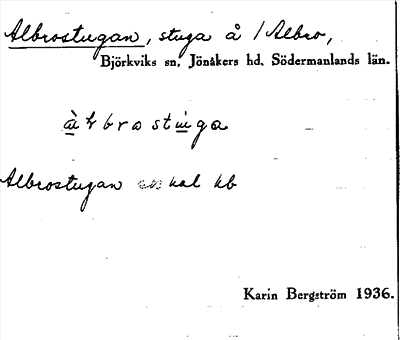 Albrostugan, stuga å / Albro,
Björkviks sn, Jönåkers hd, Södermanlands län.
Albrostugan kal kb
Karin Bergström 1936.